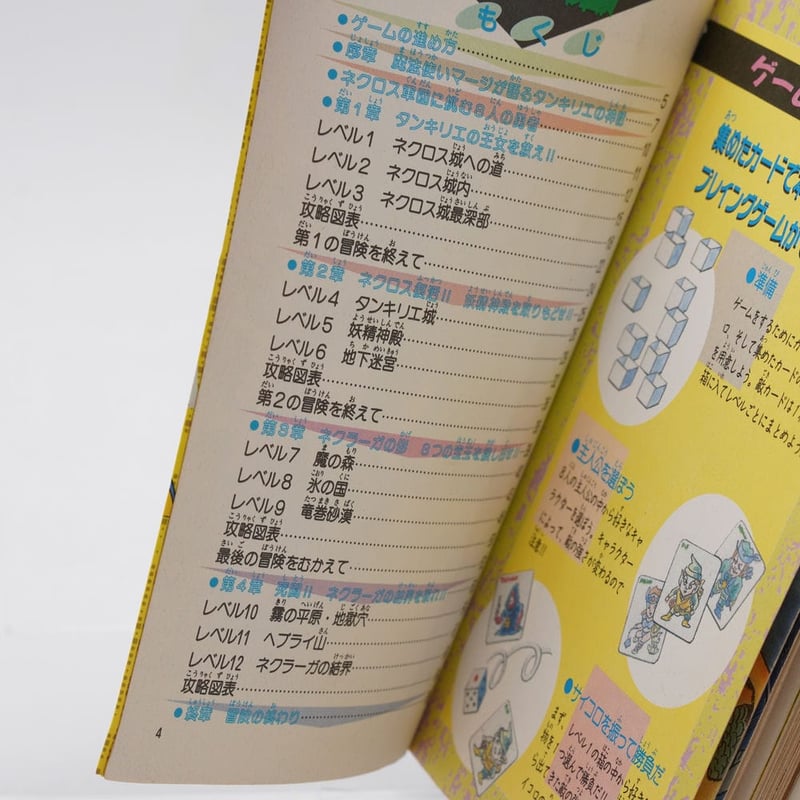 もくじ
●ゲームの進め方 5
●序章 魔法使いマージが語るタンキリエの神話 7
●ネクロス軍団に挑む8人の勇者 10
●第1章 タンキリエの王女を救え!!
レベル1 ネクロス城への道
レベル2 ネクロス城内
レベル3 ネクロス城最深部
攻略図表
第1の冒険を終えて
●第2章 ネクロス復活!! 妖精神殿を取りもどせ!!
レベル4 タンキリエ城
レベル5 妖精神殿
レベル6 地下迷宮
攻略図表
第2の冒険を終えて
●第3章 ネクラーガの影
レベル7 魔の森
レベル8 氷の国
レベル9 竜巻砂漠
攻略図表
最後の冒険をむかえて
●第4章 ネクラーガの結界を
レベル10 霧の平原・地獄穴
レベル11 ヘブライ山
レベル12 ネクラーガの結界
攻略図表
●終章 冒険の終わり
4
ゲーム
集めたカードで
プレイングゲームが
●準備
ゲームをするために
ロ、そして集めたカードの
を用意しよう。敵カードは
箱に入れてレベルごとにまとめよう
●主人公を選ぼう
8人の主人公の中から好きなキャ
ラクターを選ぼう。キャラクター
によって、敵の強さが変わるので
注意!!
●サイコロを振って勝負だ
まず、レベル1の箱の中から好き
物を1つ選んで勝負だ!!
ら出てきた敵の
イコロの